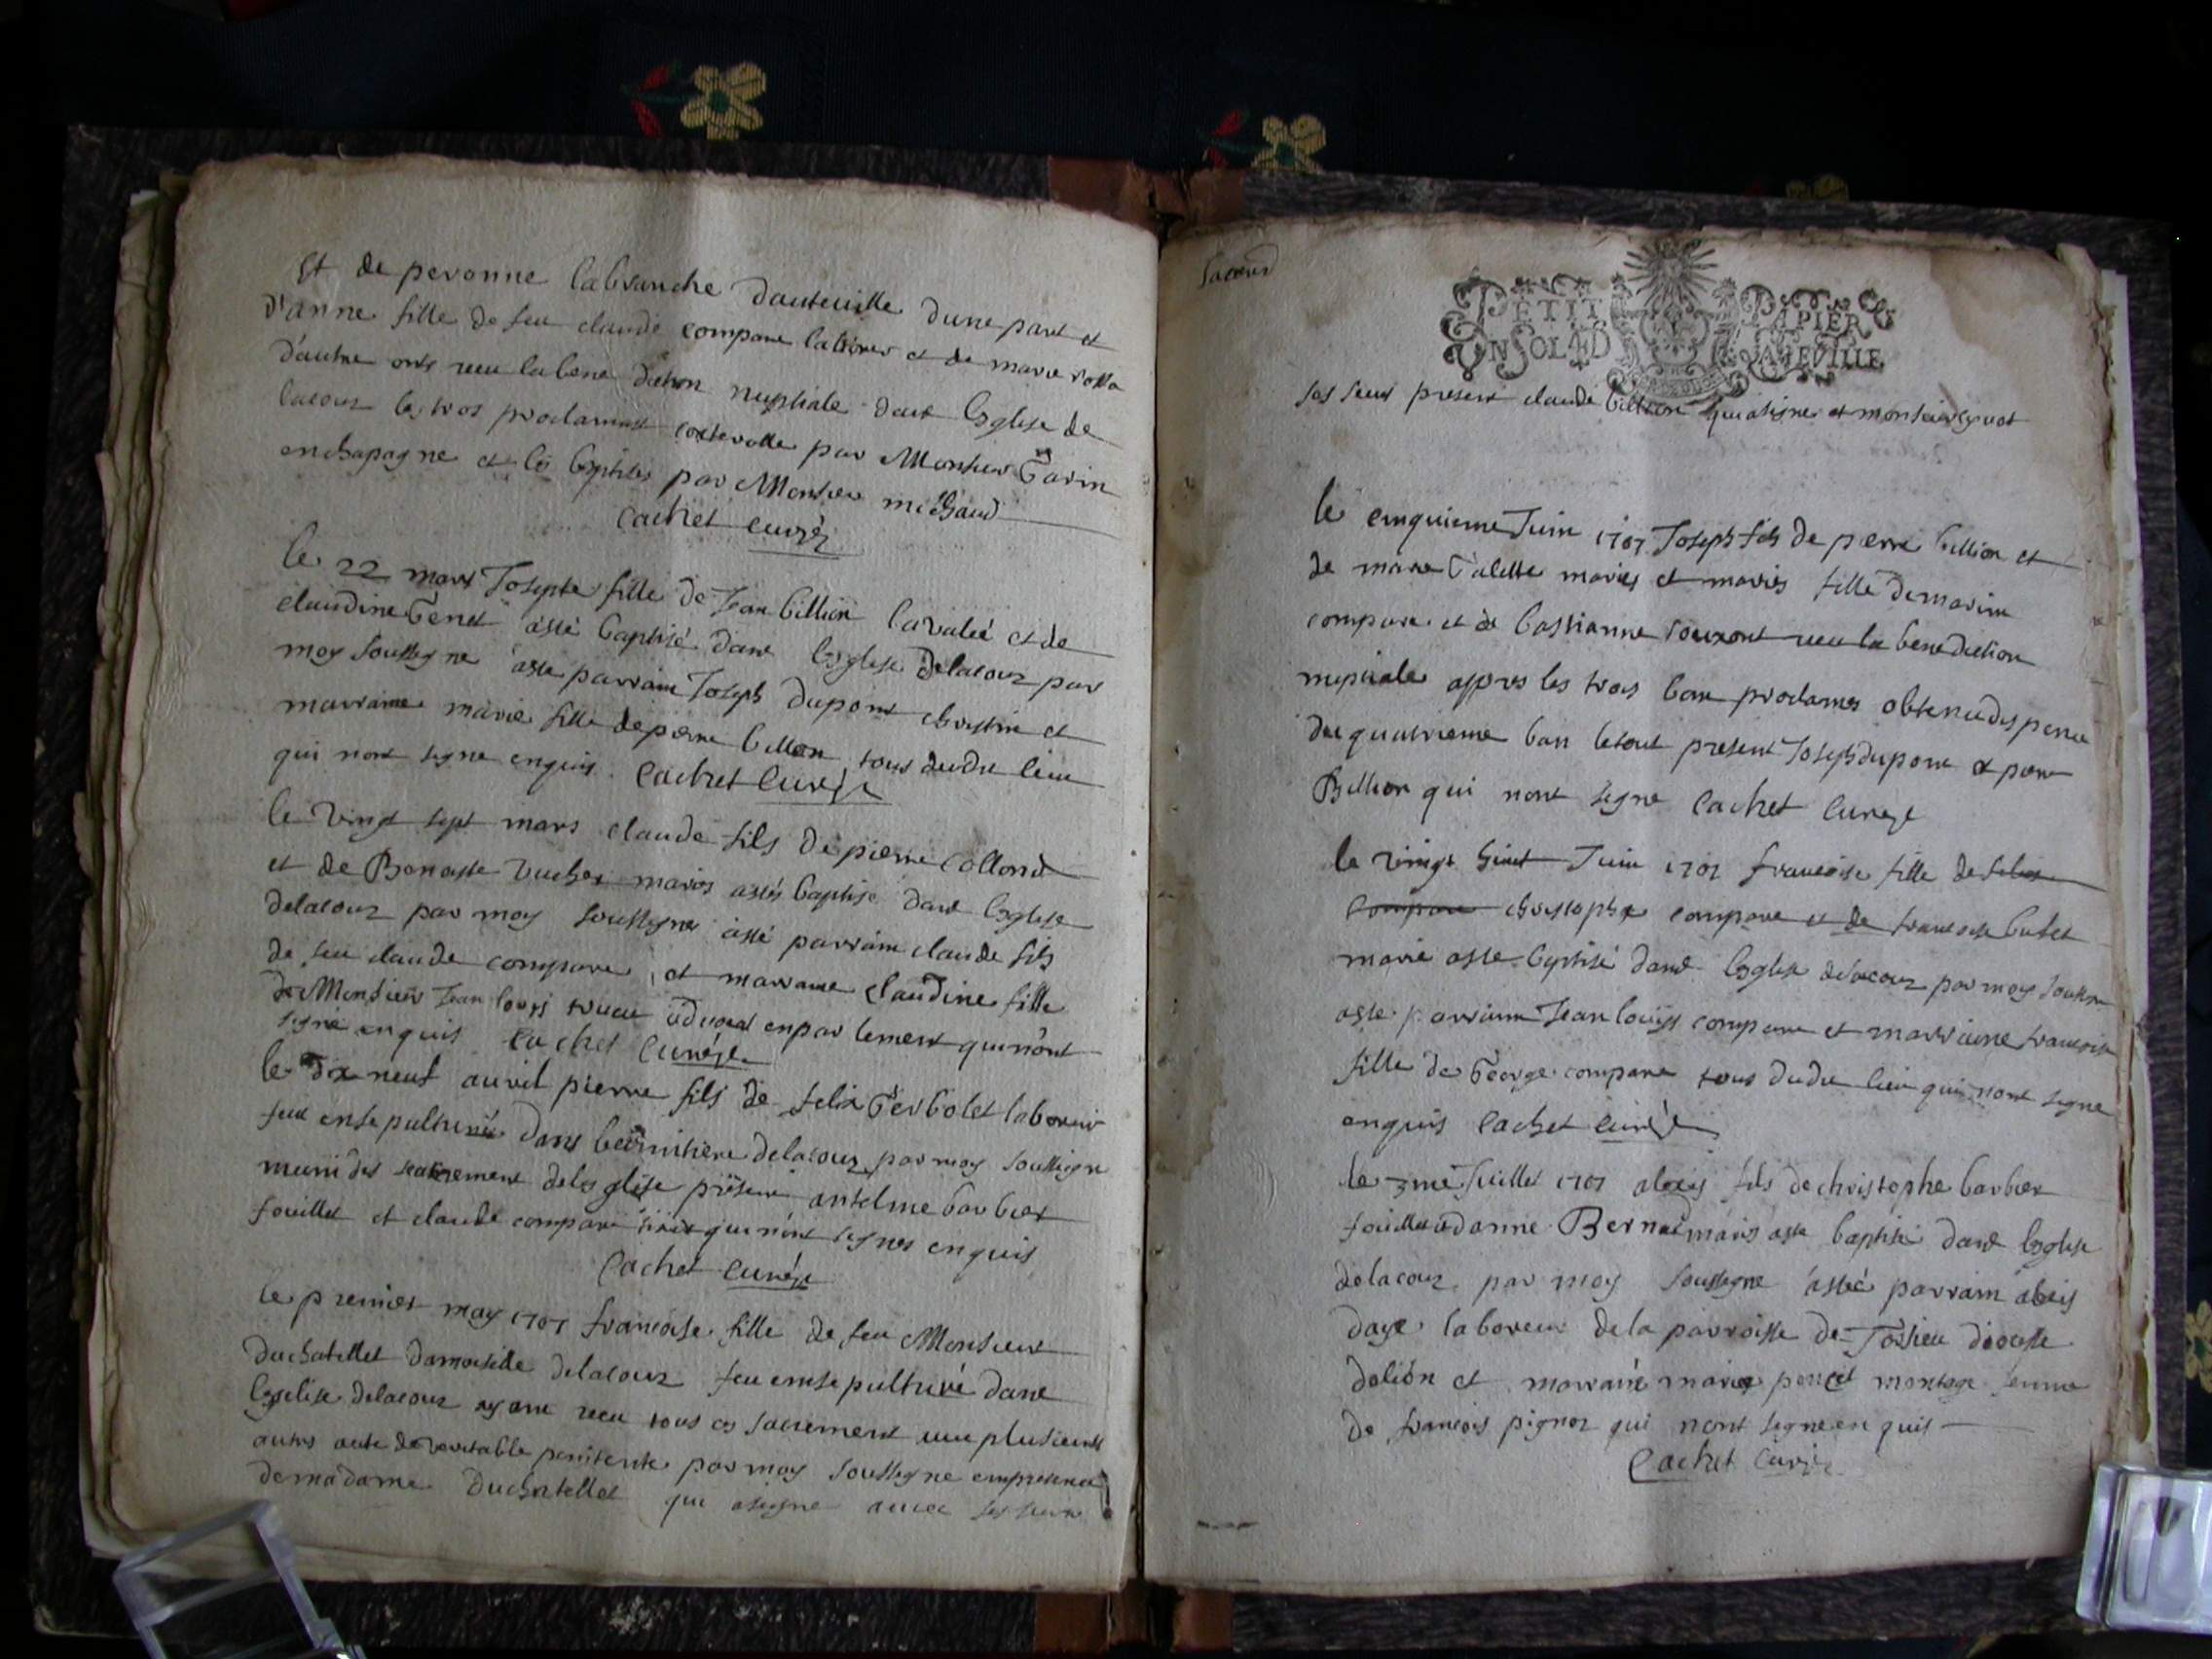 Et de peronne labranche dauteville dune part et
D'anne fille de feu claude compare laborer et de marie
d'autre onts receu labene diction nuptiale dant leglise de
lacour les trois proclamast par Monsieur Garin
enchapagne et le par Monsieur michaud
Cachet curé
le 22 mars Josepte fille de Jean billion lavaleé et de
claudine Genet asté baptisé dans leglise delacour par
moy soussigne aste parrain Joseph dupont chrestin et
marraine marie fille de pierre billon tous dudit lieu
qui nont signe enquis Cachet Curé
le vingt sept mars claude fils de pierre Collond
et de Benoiste vucher maries astés baptise dans leglise
delacour par moy soussigne asté parrain claude fils
de feu claude compare et marraine claudine fille
de Monsieur Jean louys trucu advocat enpar lement quinont
signé enquis Cachet Curé
le dix neuf avril pierre fils de felix Gerbolet laboreur
feut ensepulturé dans le cimitiere delacour par moy soussigne
muni des sacrement deles glise présent anselme barbier
fouillet et claude compare quinont signes enquis
Cachet curé
le premier may 1707 francoise fille de feu Monsieur
duchatellet damoiselle delacour feu ensepulturé dans
leglise delacour ayant receu tous ces sacrement avec plusieurs
autres acte de veritable penitente par moy soussigne enpresence
demadame duchatellet qui asigne avec ses seurs
PETIT PAPIER
UN SOL LA FEUILLE
ses seurs present claude billion quiasigne et monsieur
le cinquieme Juin 1707 Joseph fils de pierre billion et
de marie Galette maries et maries fille demarin
compare et de bastianne rouxont receu la benediction
nuptiale appres les trois ban proclames obtenu dispence
du quatrieme ban letout present Joseph dupont et pierre
Billion qui nont signe Cachet Curé
le vingt huict Juin 1707 francoise fille de felix
compare christophe compare et de francoise butet
marié aste baptisé dans leglise delacour par moy soussigne
aste parrain Jean louys compare et marraine francoise
fille de George compare tous dudit lieu qui nont signe
enquis Cachet curé
le 3me Juillet 1707 alexis fils de christophe barbier
fouillet danne Bernat maris aste baptisé dans leglise
delacour par moy soussigne astéé parrain alexis
daye laboreur de la parroisse de Tossieu diocesse
delion et marraine marie poncet montage femme
de francois pignoz qui nont signe en quis
Cachet Curé